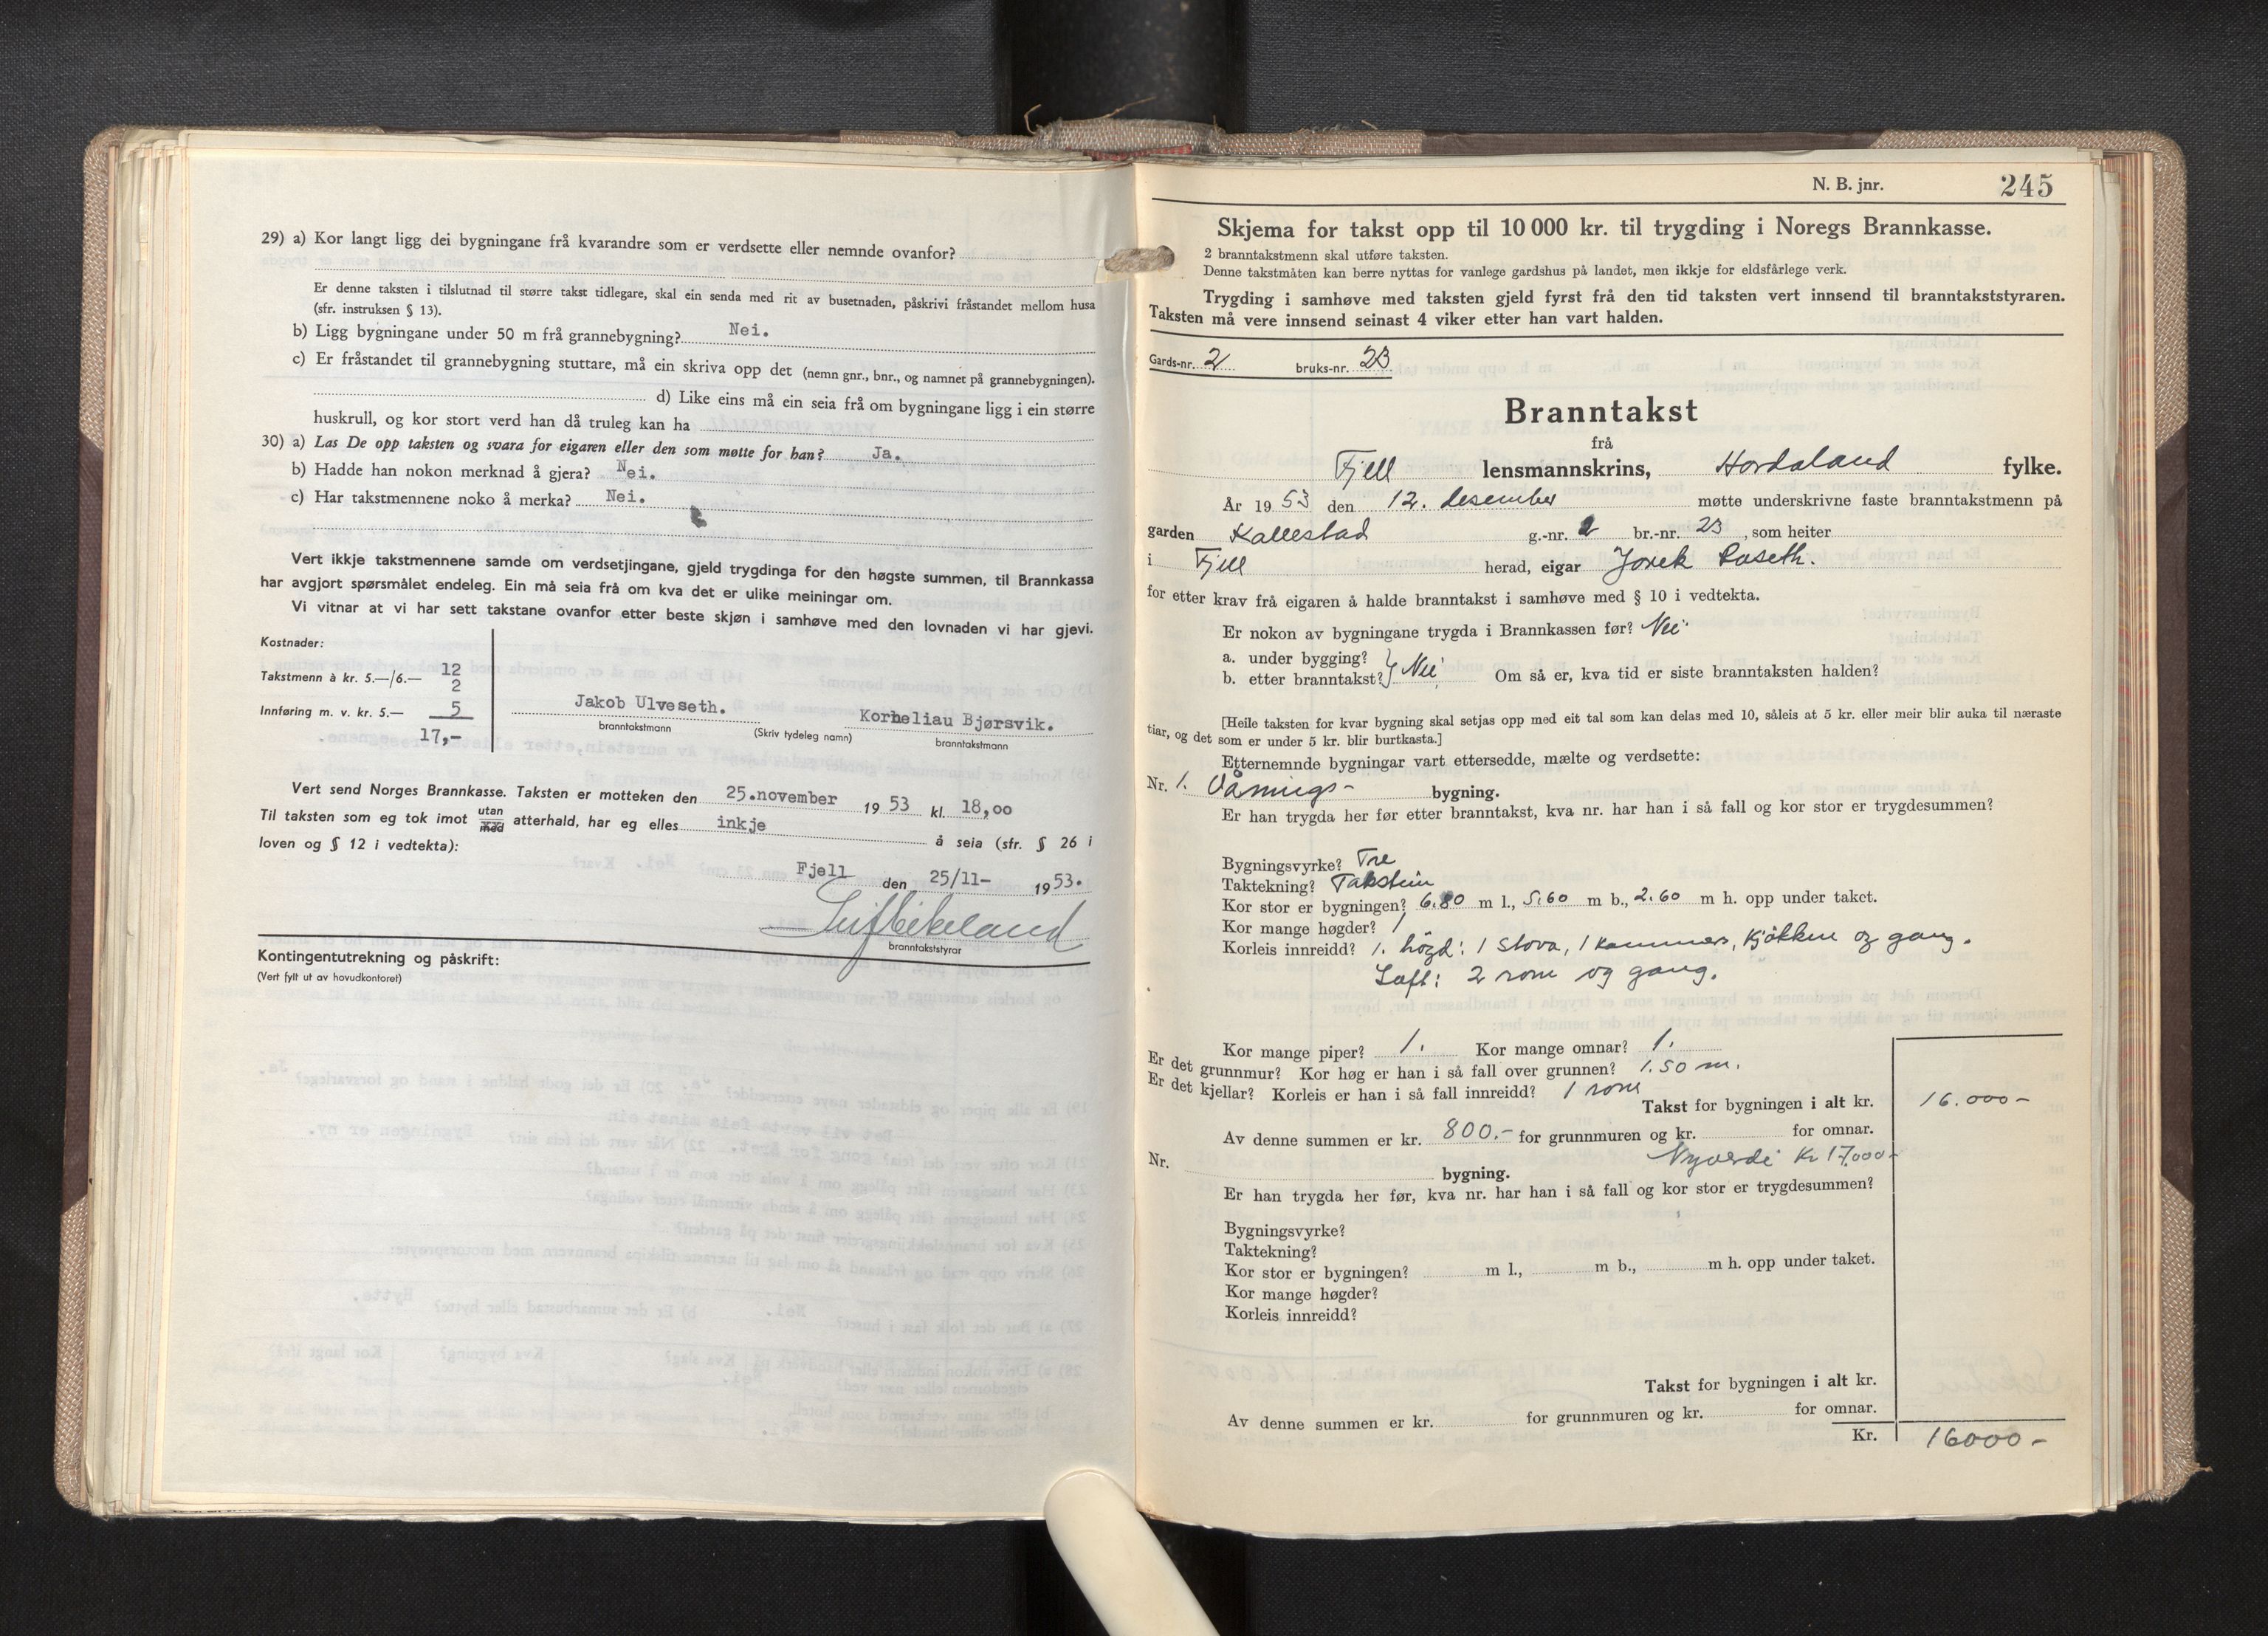 29) a) Kor langt ligg dei bygningane frå kvarandre som er verdsette eller nemnde ovanfor?
Er denne taksten i tilslutnad til større takst tidlegare, skal ein senda med rit av busetnaden, påskrivi fråstandet mellom husa
(sfr. instruksen § 13).
b) Ligg bygningane under 50 m frå grannebygning? Nei.
c) Er fråstandet til grannebygning stuttare, må ein skriva opp det (nemn gnr., bnr., og namnet på grannebygningen).
d) Like eins må ein seia frå om bygningane ligg i ein større
huskrull, og kor stort verd han då truleg kan ha
30) a) Las De opp taksten og svara for eigaren eller den som møtte for han? Ja.
b) Hadde han nokon merknad å gjera? Nei.
c) Har takstmennene noko å merka? Nei.
Vert ikkje takstmennene samde om verdsetjingane, gjeld trygdinga for den høgste summen, til Brannkassa
har avgjort spørsmålet endeleg. Ein må seia frå om kva det er ulike meiningar om.
Vi vitnar at vi har sett takstane ovanfor etter beste skjøn i samhøve med den lovnaden vi har gjevi.
Kostnader:
Takstmenn à kr. 5.—/6.— 12
2
Innføring m. v. kr. 5.— 5
17,-
Jakob Ulveseth. Korneliau Bjørsvik.
branntakstmann (Skriv tydeleg namn) branntakstmann
Vert send Norges Brannkasse. Taksten er motteken den 25.november 1953 kl. 18,oo
Til taksten som eg tok imot utan/med atterhald, har eg elles inkje å seia (sfr. § 26 i
loven og § 12 i vedtekta):
Fjell den 25/11- 1953.
Leif Birkeland
branntakststyrar
Kontingentutrekning og påskrift:
(Vert fylt ut av hovudkontoret)
N. B. jnr. 245
Skjema for takst opp til 10 000 kr. til trygding i Noregs Brannkasse.
2 branntakstmenn skal utføre taksten.
Denne takstmåten kan berre nyttas for vanlege gardshus på landet, men ikkje for eldsfårlege verk.
Trygding i samhøve med taksten gjeld fyrst frå den tid taksten vert innsend til branntakststyraren.
Taksten må vere innsend seinast 4 viker etter han vart halden.
Gards-nr. 2 bruks-nr. 23
Branntakst
frå
Fjell lensmannskrins, Hordaland fylke.
År 1953 den 12. desember møtte underskrivne faste branntakstmenn på
garden Kallestad g.-nr. 2 br.-nr. 23, som heiter
i Fjell herad, eigar
for etter krav frå eigaren å halde branntakst i samhøve med § 10 i vedtekta.
Er nokon av bygningane trygda i Brannkassen før? Nei
a. under bygging?
b. etter branntakst? } Nei Om så er, kva tid er siste branntaksten halden?
[Heile taksten for kvar bygning skal setjas opp med eit tal som kan delas med 10, såleis at 5 kr. eller meir blir auka til næraste
tiar, og det som er under 5 kr. blir burtkasta.]
Etternemnde bygningar vart ettersedde, mælte og verdsette:
Nr. 1. Vånings- bygning.
Er han trygda her før etter branntakst, kva nr. har han i så fall og kor stor er trygdesummen?
Bygningsvyrke? Tre
Taktekning? Takstein
Kor stor er bygningen? 6.80 m l., 5.60 m b., 2.60 m h. opp under taket.
Kor mange høgder? 1
Korleis innreidd? 1. högd: 1 stova, 1 kammers, kjökken og gang.
Loft: 2 rom og gang.
Kor mange piper? 1. Kor mange omnar? 1.
Er det grunnmur? Kor høg er han i så fall over grunnen? 1.50 m.
Er det kjellar? Korleis er han i så fall innreidd? 1 rom
Takst for bygningen i alt kr. 16.000-
Av denne summen er kr. 800.- for grunnmuren og kr. for omnar.
Nyverdi kr 17.000-
Nr. bygning.
Er han trygda her før, kva nr. har han i så fall og kor stor er trygdesummen?
Bygningsvyrke?
Taktekning?
Kor stor er bygningen? m l., m b., m h. opp under taket.
Kor mange høgder?
Korleis innreidd?
Takst for bygningen i alt kr.
Av denne summen er kr. for grunnmuren og kr. for omnar.
Kr. 16000-